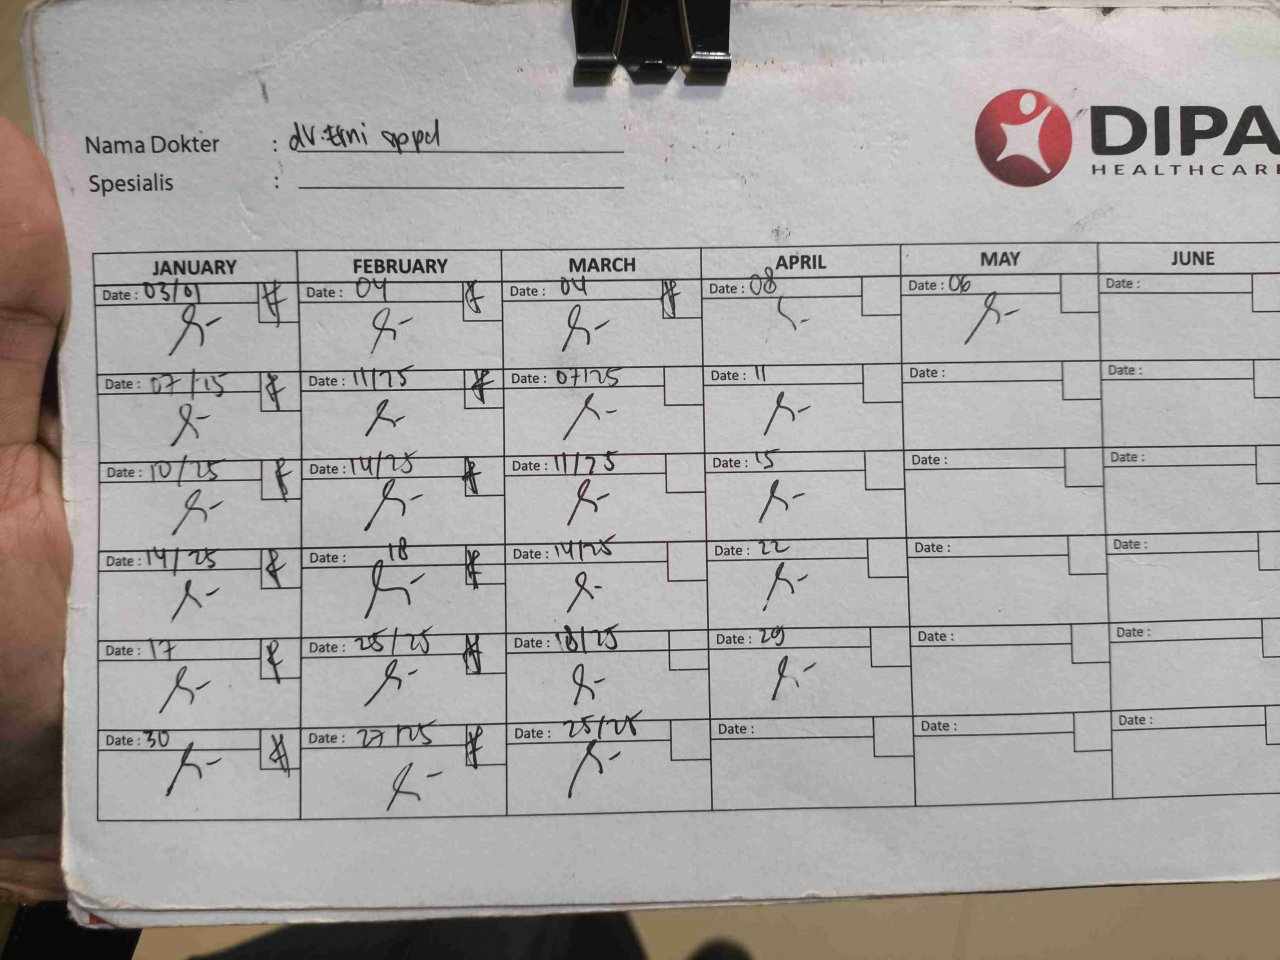 Nama Dokter : dr. Erni sppd
Spesialis :
DIPA
HEALTHCAR
JANUARY FEBRUARY MARCH APRIL MAY JUNE
Date : 03/01 Date : 04 Date : 04 Date : 08 Date : 06 Date :
Date : 07/15 Date : 11/25 Date : 07/25 Date : 11 Date : Date :
Date : 10/25 Date : 14/25 Date : 11/25 Date : 15 Date : Date :
Date : 14/25 Date : 18 Date : 14/25 Date : 22 Date : Date :
Date : 17 Date : 25/25 Date : 18/25 Date : 29 Date : Date :
Date : 30 Date : 27/25 Date : 25/25 Date : Date : Date :